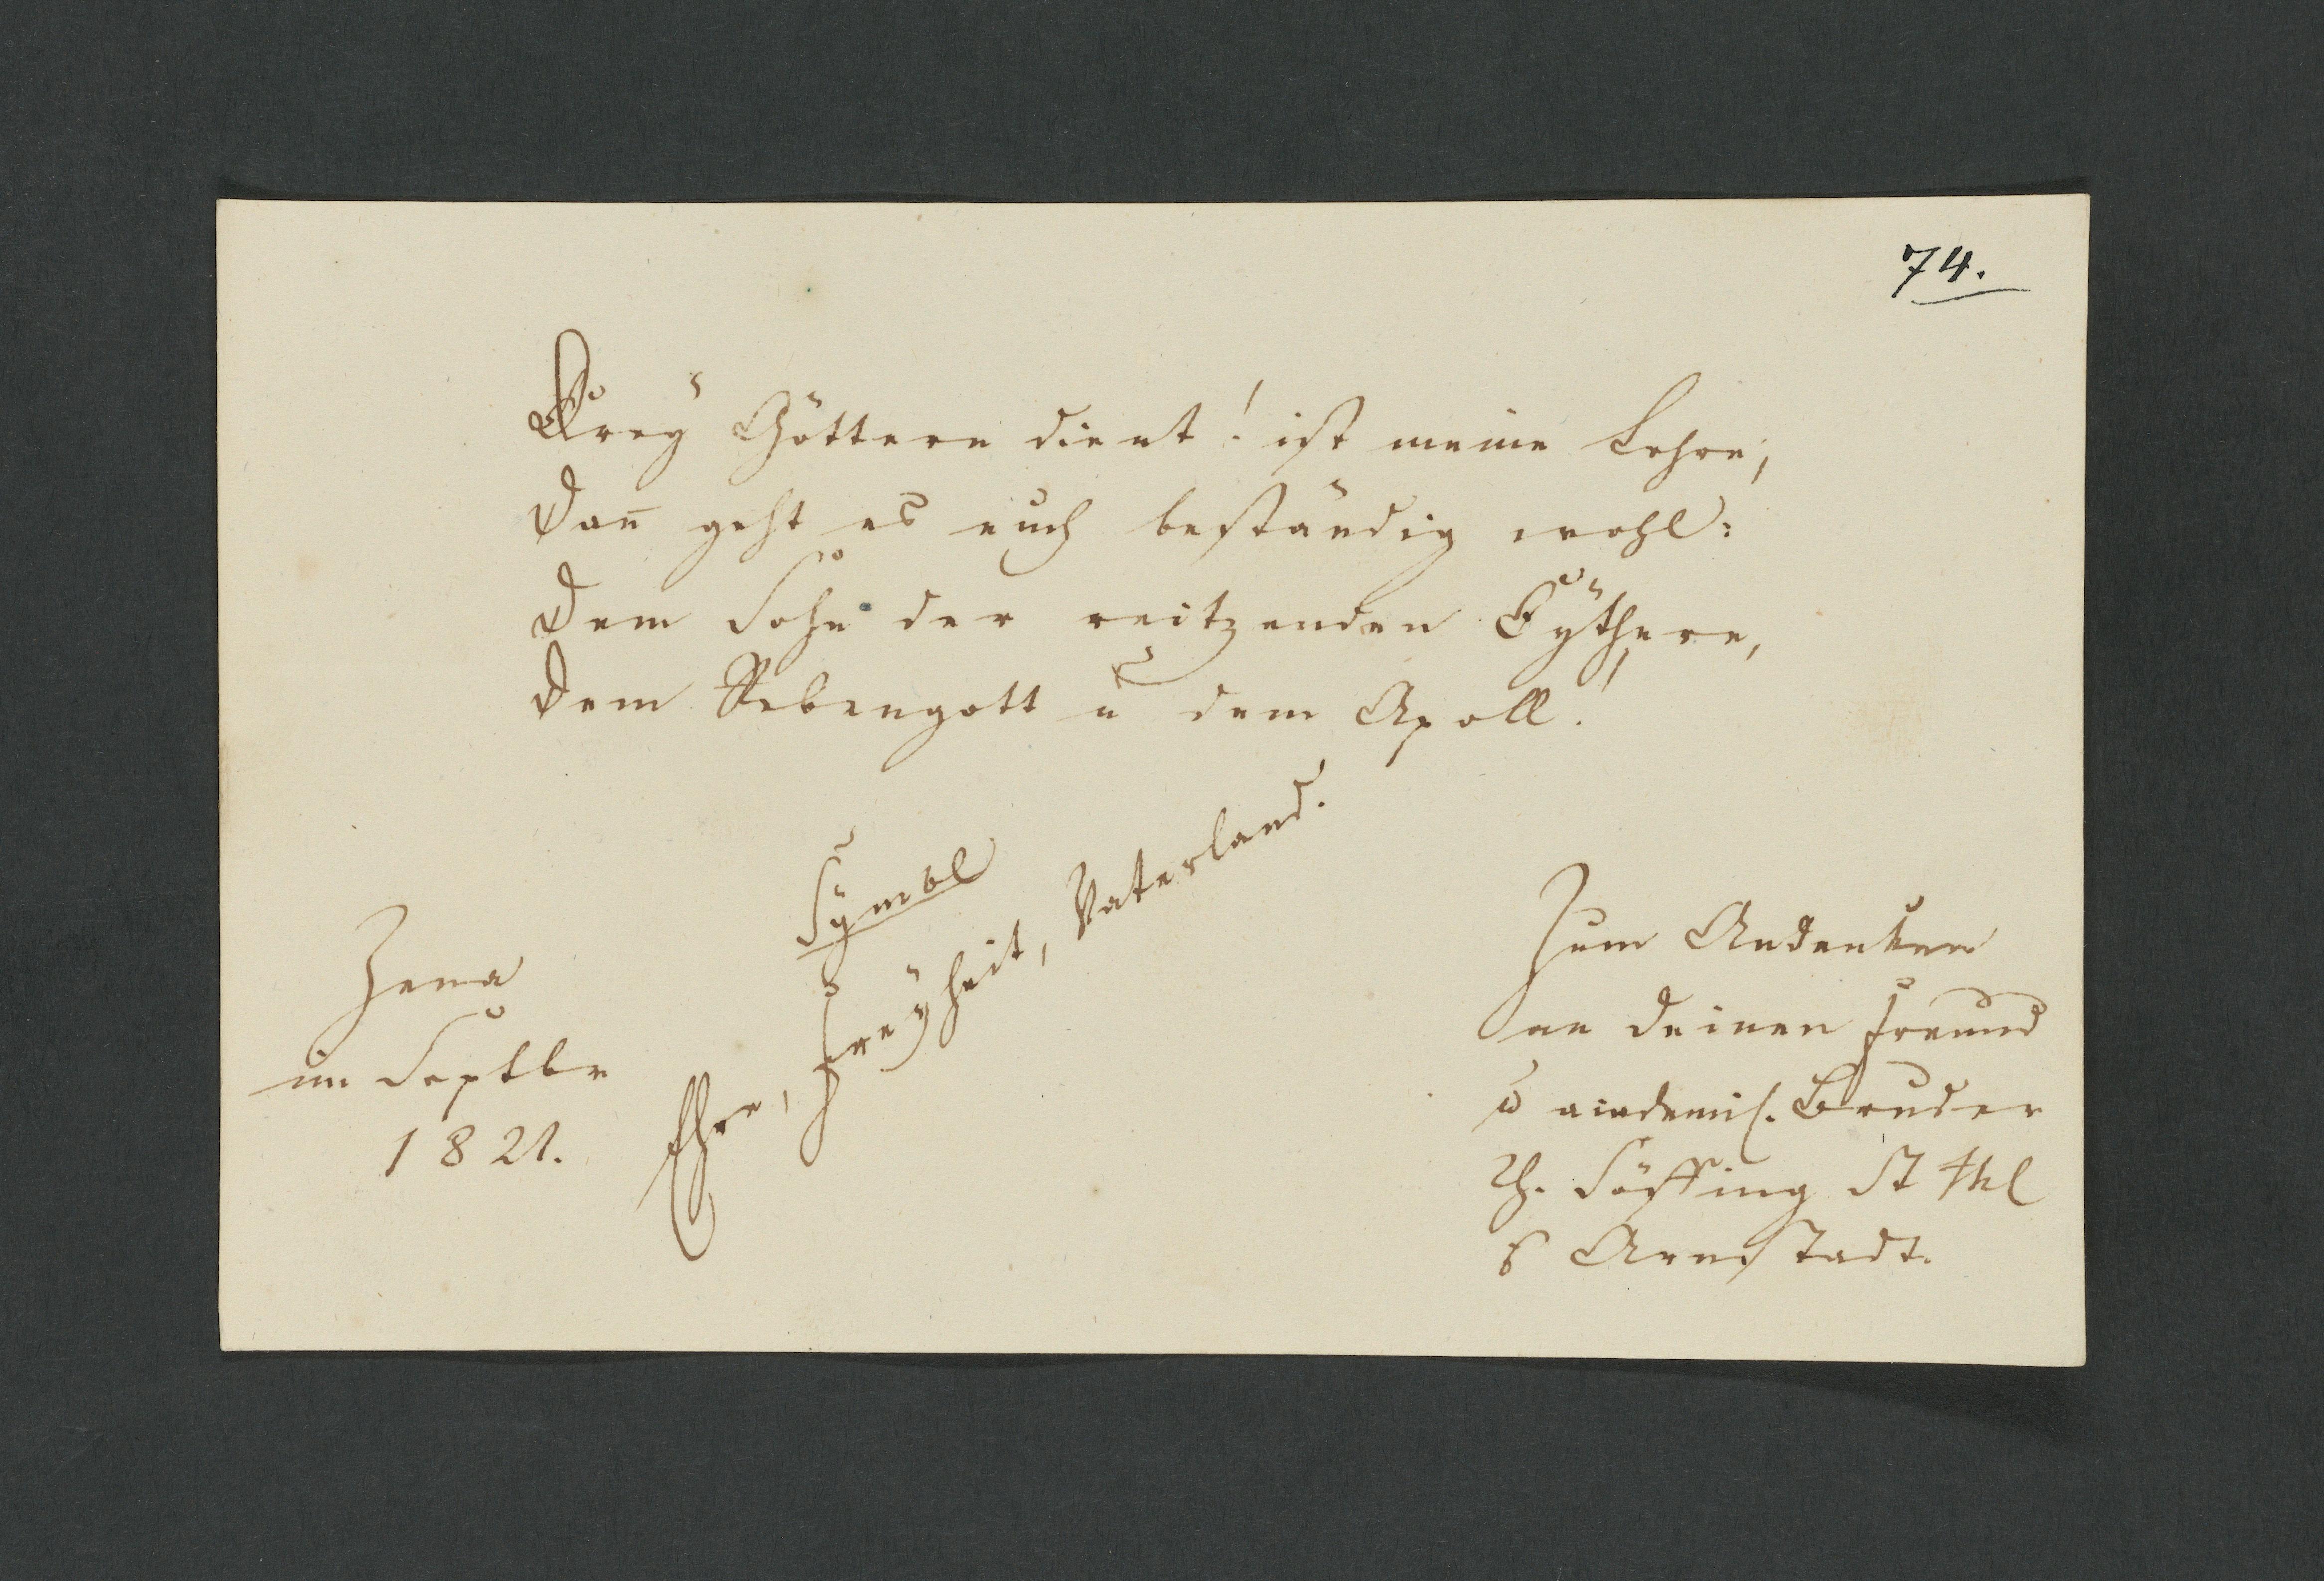 74.
Drey Göttern dient! ist meine Lehre,
Dan̄ geht es euch beständig wohl:
Dem Sohn der reitzenden Cÿthere,
Dem Rebengott u dem Apoll!
Symbl
Ehre, Freÿheit, Vaterland.
Jena
im Septbr
1821.
Zum Andenken
an deinen Freund
u academis. Bruder
Söffing St
Arnstadt.